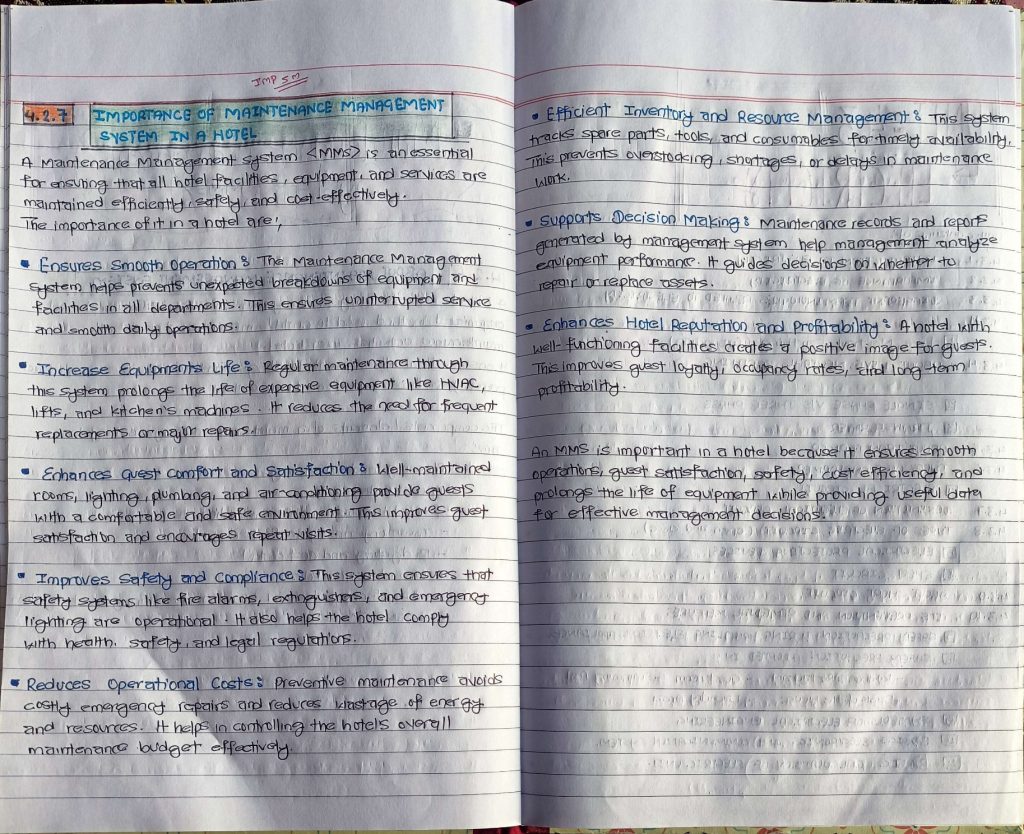 IMP 5M
4.2.7 IMPORTANCE OF MAINTENANCE MANAGEMENT
SYSTEM IN A HOTEL
A Maintenance Management System <MMS> is an essential
for ensuring that all hotel facilities, equipment, and services are
maintained efficiently, safely, and cost-effectively.
The importance of it in a hotel are;
• Ensures Smooth Operation: The Maintenance Management
System helps prevents unexpected breakdowns of equipment and
facilities in all departments. This ensures uninterrupted service
and smooth daily operations.
• Increase Equipments Life: Regular maintenance through
this system prolongs the life of expensive equipment like HVAC,
lifts, and kitchen's machines. It reduces the need for frequent
replacements or major repairs.
• Enhances Guest Comfort and Satisfaction: Well-maintained
rooms, lighting, plumbing, and air-conditioning provide guests
with a comfortable and safe environment. This improves guest
satisfaction and encourages repeat visits.
• Improves Safety and Compliance: This system ensures that
safety systems like fire alarms, extinguishers, and emergency
lighting are operational. It also helps the hotel comply
with health, safety, and legal regulations.
• Reduces Operational Costs: Preventive maintenance avoids
costly emergency repairs and reduces wastage of energy
and resources. It helps in controlling the hotels overall
maintenance budget effectively.
• Efficient Inventory and Resource Management: This system
tracks spare parts, tools, and consumables for timely availability.
This prevents overstocking, shortages, or delays in maintenance
work.
• Supports Decision Making: Maintenance records and reports
generated by management system help management analyze
equipment performance. It guides decisions on whether to
repair or replace assets.
• Enhances Hotel Reputation and Profitability: A hotel with
well-functioning facilities creates a positive image for guests.
This improves guest loyalty, occupancy rates, and long-term
profitability.
An MMS is important in a hotel because it ensures smooth
operations, guest satisfaction, safety, cost efficiency, and
prolongs the life of equipment while providing useful data
for effective management decisions.